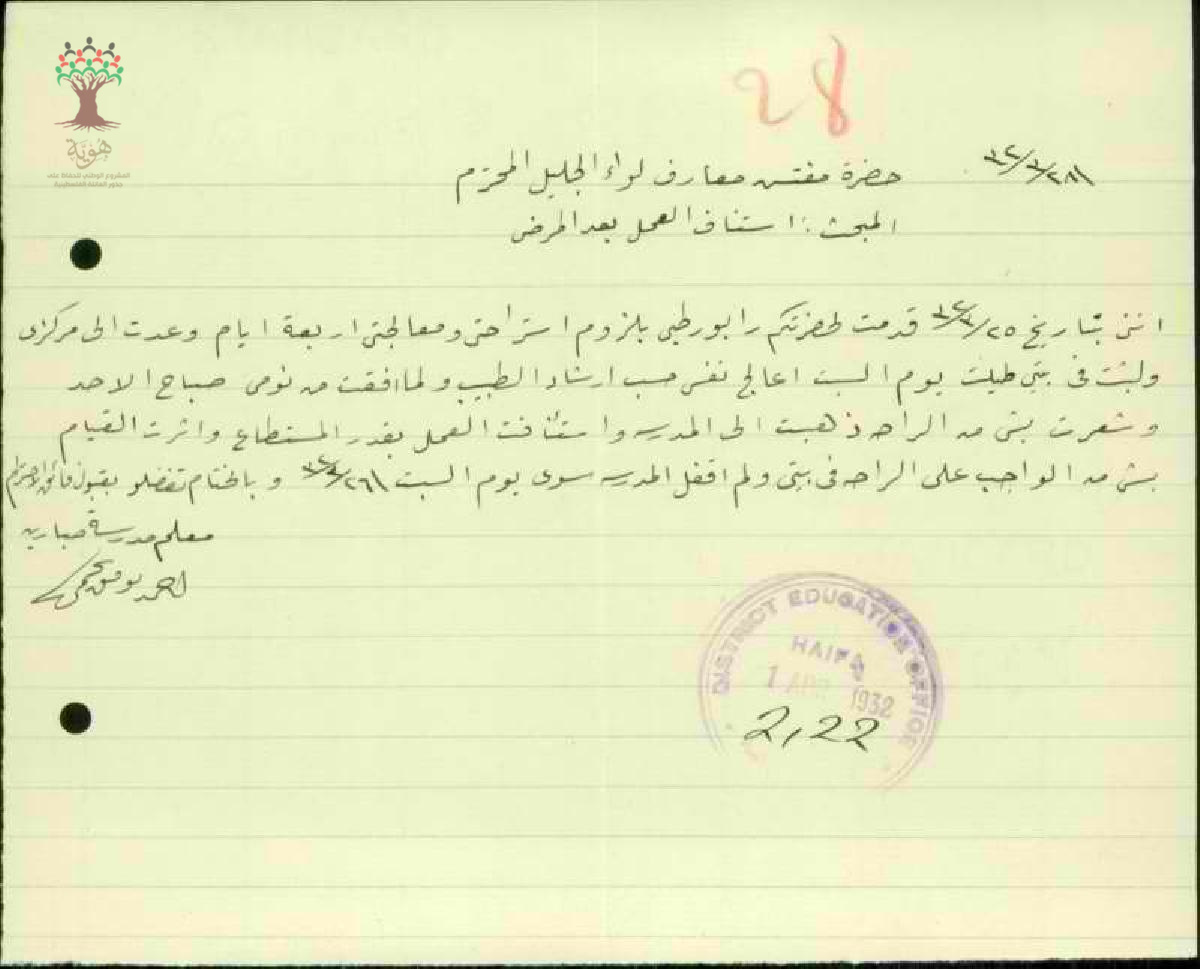 هُوِيَّة
المشروع الوطني للحفاظ على
جذور العائلة الفلسطينية
28
٢٨/٣/٣٢
حضرة مفتش معارف لواء الجليل المحترم
المبحث: استئناف العمل بعد المرض
انني بتاريخ ٢٥/٣/٣٢ قدمت لحضرتكم رابور طبي بلزوم استراحتي ومعالجتي اربعة ايام وعدت الى مركزي
ولبثت في بيتي طيلت يوم السبت اعالج نفسي حسب ارشاد الطبيب ولما افقت من نومي صباح الاحد
وشعرت بشيء من الراحه ذهبت الى المدرسه واستئنافت العمل بقدر المستطاع واثرت القيام
بشيء من الواجب على الراحه في بيتي ولم اقفل المدرسه سوى يوم السبت ٢٦/٣/٣٢ وبالختام تفضلو بقبول فائق الاحترام
معلم مدرسة صبارين
احمد توفيق
DISTRICT EDUCATION OFFICE
HAIFA
1 APR 1932
2,22